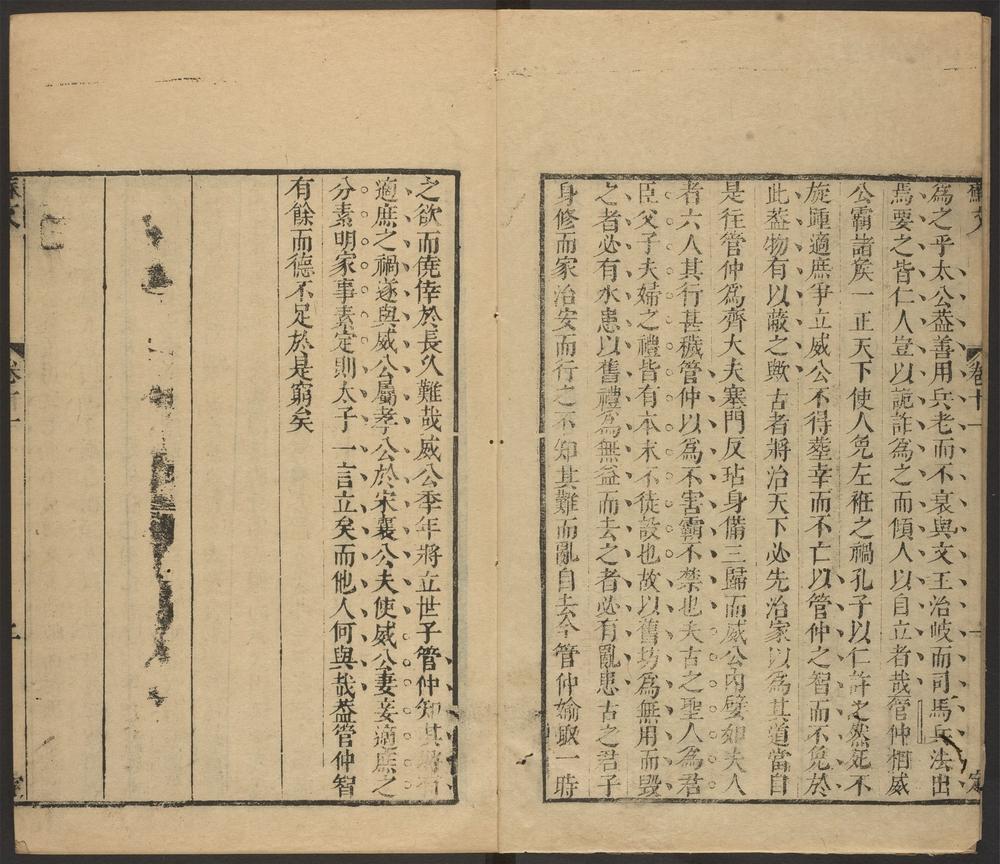 蘇文 卷十一
為之乎太公葢善用兵老而不衰與文王治岐而司馬兵法出
焉要之皆仁人豈以詭詐為之而傾人以自立者哉管仲相威
公霸諸矦一正天下使人免左衽之禍孔子以仁許之然死不
旋踵適庶爭立威公不得塟幸而不亡以管仲之智而不免於
此葢物有以蔽之歟古者將治天下必先治家以為其道當自
是往管仲為齊大夫塞門反坫身備三歸而威公內嬖如夫人
者六人其行甚穢管仲以為不害霸不禁也夫古之聖人為君
臣父子夫婦之禮皆有本末不徒設也故以舊坊為無用而毀
之者必有水患以舊禮為無益而去之者必有亂患古之君子
身修而家治安而行之不知其難而亂自去今管仲媮取一時
之欲而僥倖於長久難哉威公季年將立世子管仲知其將有
適庶之禍遂與威公屬孝公於宋襄公夫使威公妻妾適庶之
分素明家事素定則太子一言立矣而他人何與哉葢管仲智
有餘而德不足於是窮矣
卷十一